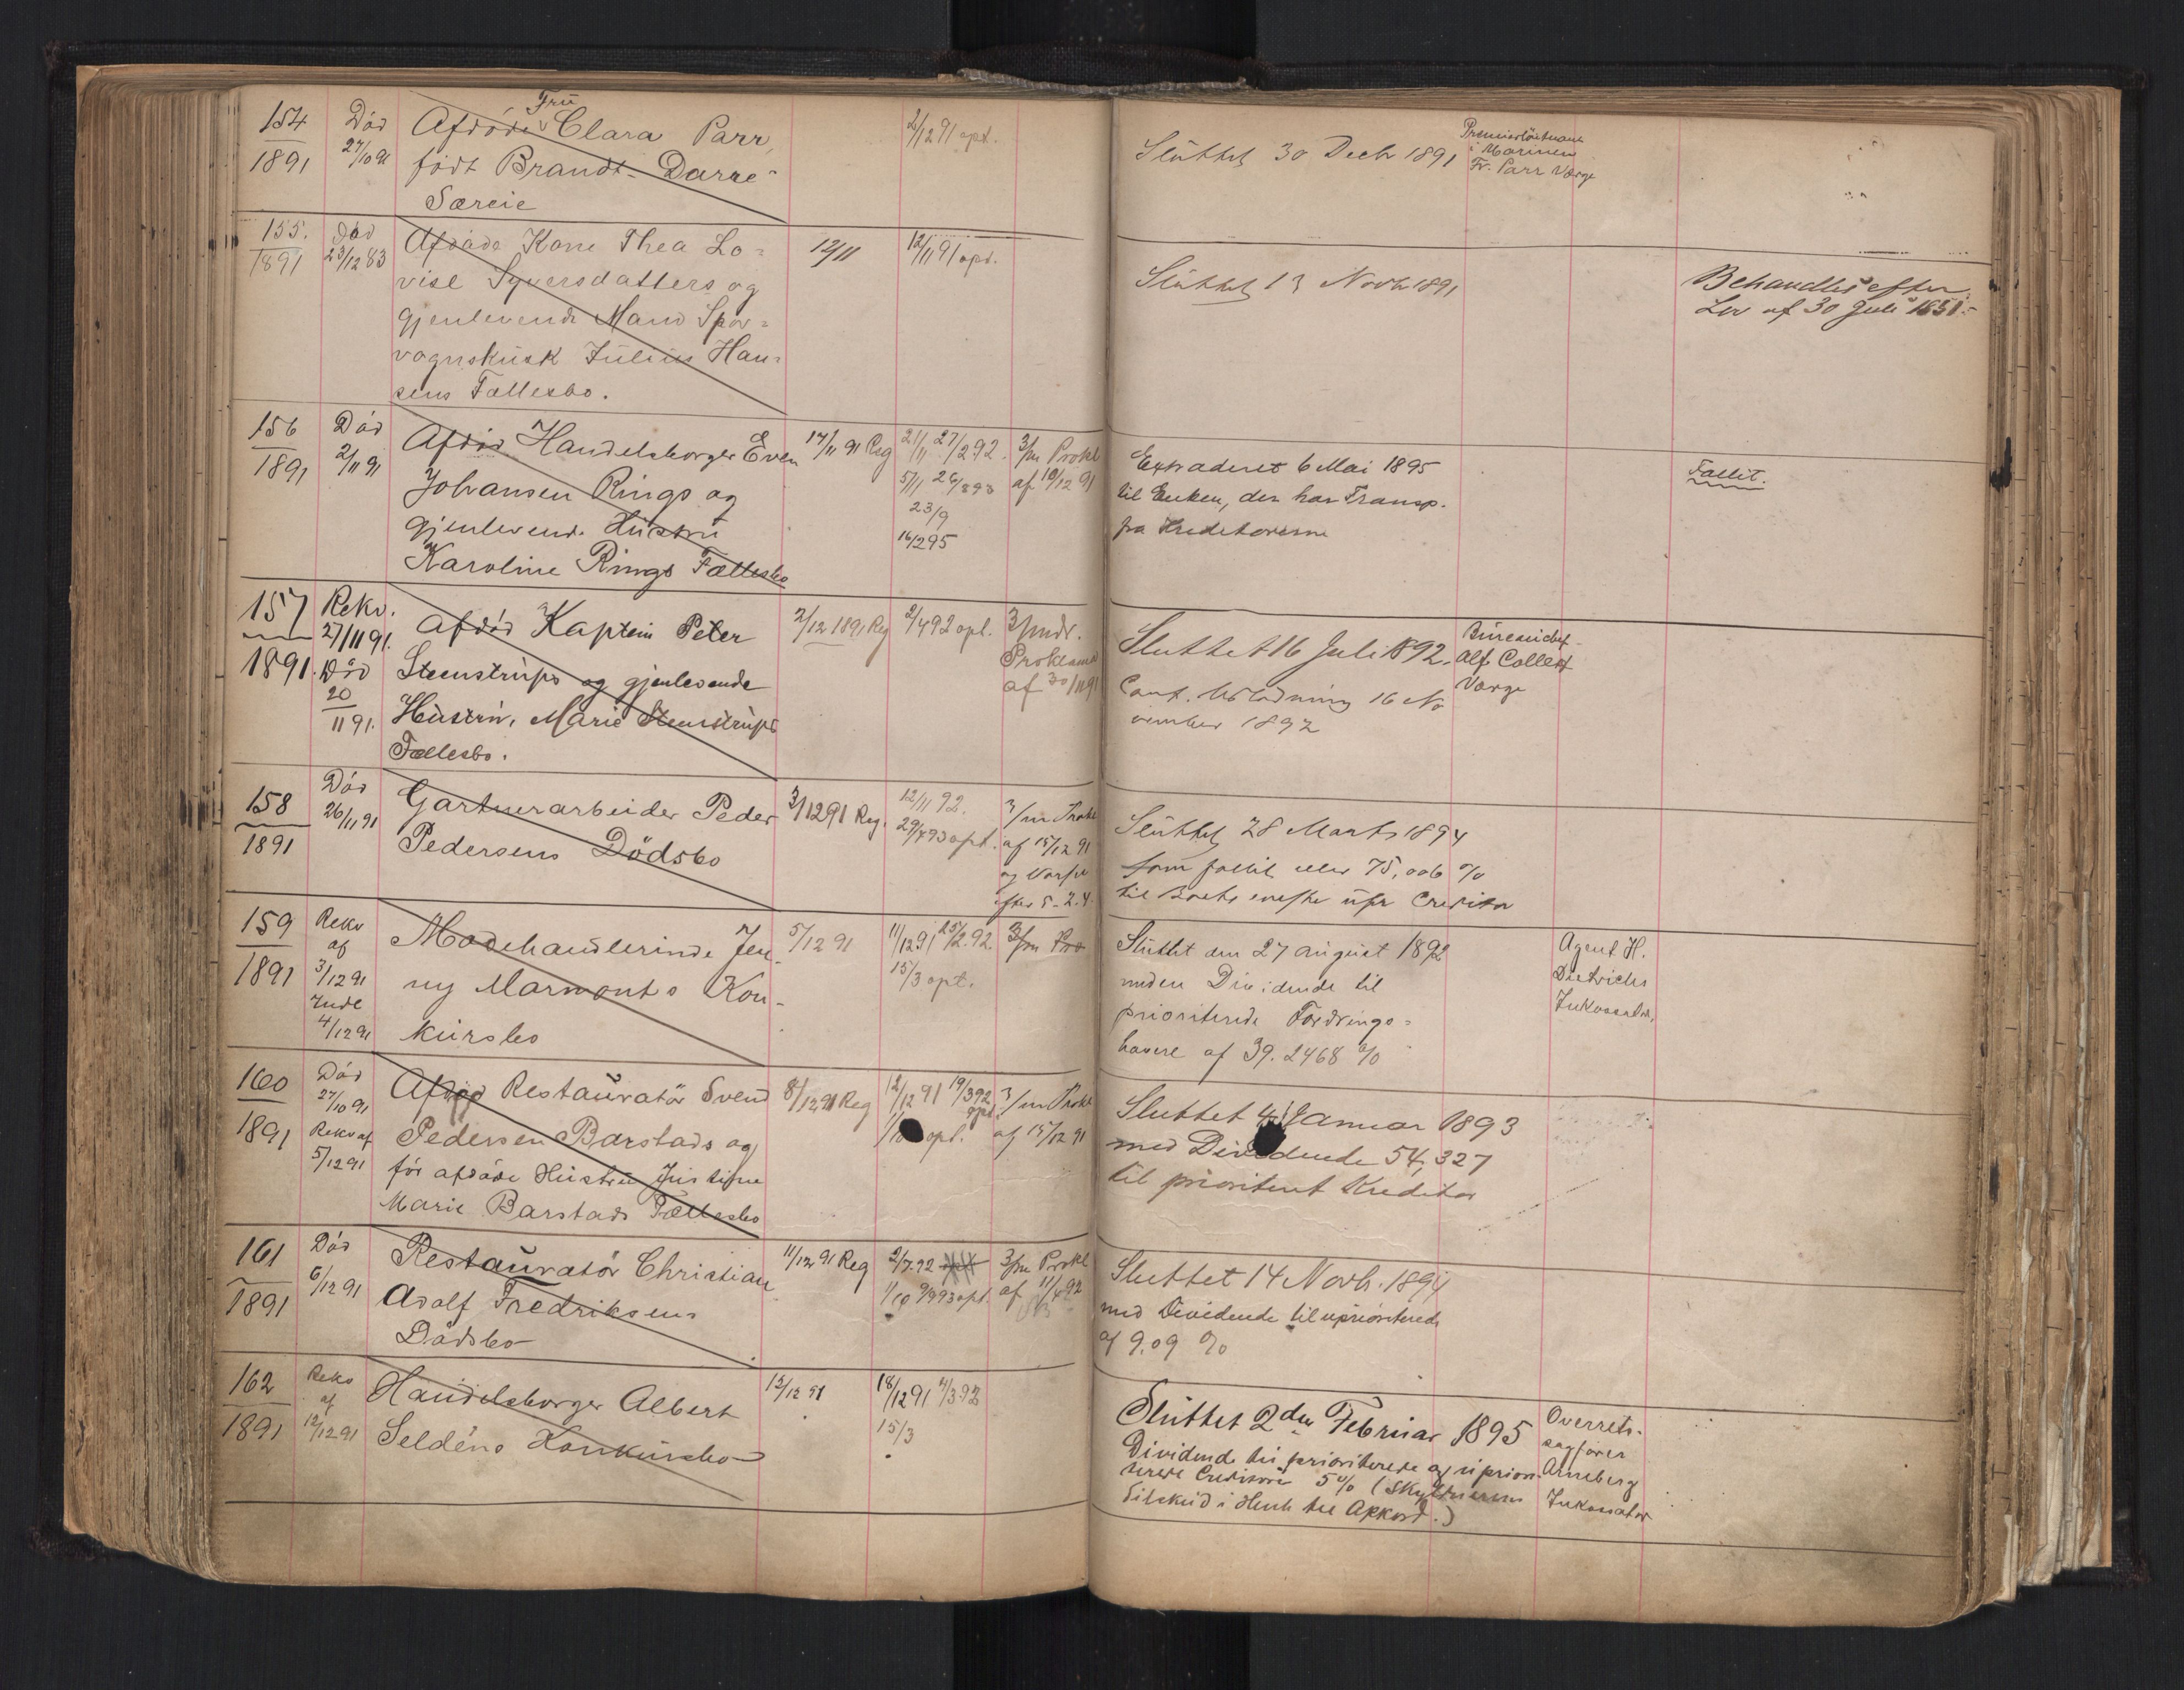 154
1891
Död
27/10 91
Afdöde Fru Clara Parr,
födt Brandt-Darre
Særeie
2/12 91 opt.
Sluttet 30 Decbr 1891
Premierløitnant
i Marinen
Fr. Parr Værge
155.
1891
död
23/12 83
Afdöde Kone Thea Lo-
vise Syversdatters og
gjenlevende Mand Spor-
vognskusk Julius Han-
sens Fællesbo.
12/11
12/11 91 opt.
Sluttet 13 Novbr 1891
Behandles efter
Lov af 30 Juli 1851.
156
1891
Död
2/11 91
Afdöd Handelsborger Even
Johansen Rings og
gjenlevende Hustru
Karoline Rings Fællesbo
17/11 91 Reg
27/2 92
23/9
16/2 95
3/m Prokl
af 10/12 91
Extraderet 6 Mai 1895
til Enken, der har Transp.
fra Kreditorerne
Fallit.
157
1891.
Rekv.
27/11 91.
Död
20
11 91.
Afdöd Kaptein Peter
Steenstrups og gjenlevende
Hustru, Marie Steenstrups
Fællesbo.
2/12 1891 Reg
2/4 92 opt.
3/mdr.
Proklama
af 30/11 91
Sluttet 16 Juli 1892.
Cont. Udlodning 16 No
vember 1892
Bureauchef
Alf Collett
Værge
158
1891
Död
26/11 91
Gartnerarbeider Peder
Pedersens Dödsbo
3/12 91 Reg.
12/11 92.
3/m Prokl
af 15/12 91
Sluttet 28 Marts 1894
som fallit 75,006 %
til Boets eneste upr Creditor
159
1891
Rekv
af
3/12 91
Inde
4/12 91
Modehandlerinde Jen-
ny Marmonts Kon-
kursbo
5/12 91
11/12 91 25/2. 92.
15/3 opt.
3/m Pro
Sluttet den 27 august 1892
uden Dividende til
prioriterede Fordrings-
havere af 39.2468 %
Agent H.
Dietrichs
Inkassator.
160
1891
Död
27/10 91
Rekv af
5/12 91
Afdöd Restauratör Svend
Pedersen Barstads og
för afdöde Hustru Justine
Marie Barstads Fællesbo
8/12 91 Reg
12/12 91 19/3 92
opt.
opt.
3/m Prokl
af 15/12 91
Sluttet 4 Januar 1893
med Dividende 54,327
til prioritent Kreditor
161
1891
Död
6/12 91
Restauratör Christian
Adolf Fredriksens
Dödsbo
11/12 91 Reg
2/7. 92
1/10 9/3 93 opt.
3/m Prokl
af 11/4 92
Sluttet 14 Novb. 1894
med Dividende til uprioriterede
af 9.09 %
162
1891
Rekv
af
12/12 91
Handelsborger Albert
Seldéns Konkursbo
15/12 91
18/12 91 4/3 92
15/3
Sluttet 2den Februar 1895
Dividende til prioriterede og uprior-
terede Creditorer 5 % (Skyldnerens
Tilskud i Henh til Akkord.)
Overrets-
sagförer
Arneberg
Inkassator